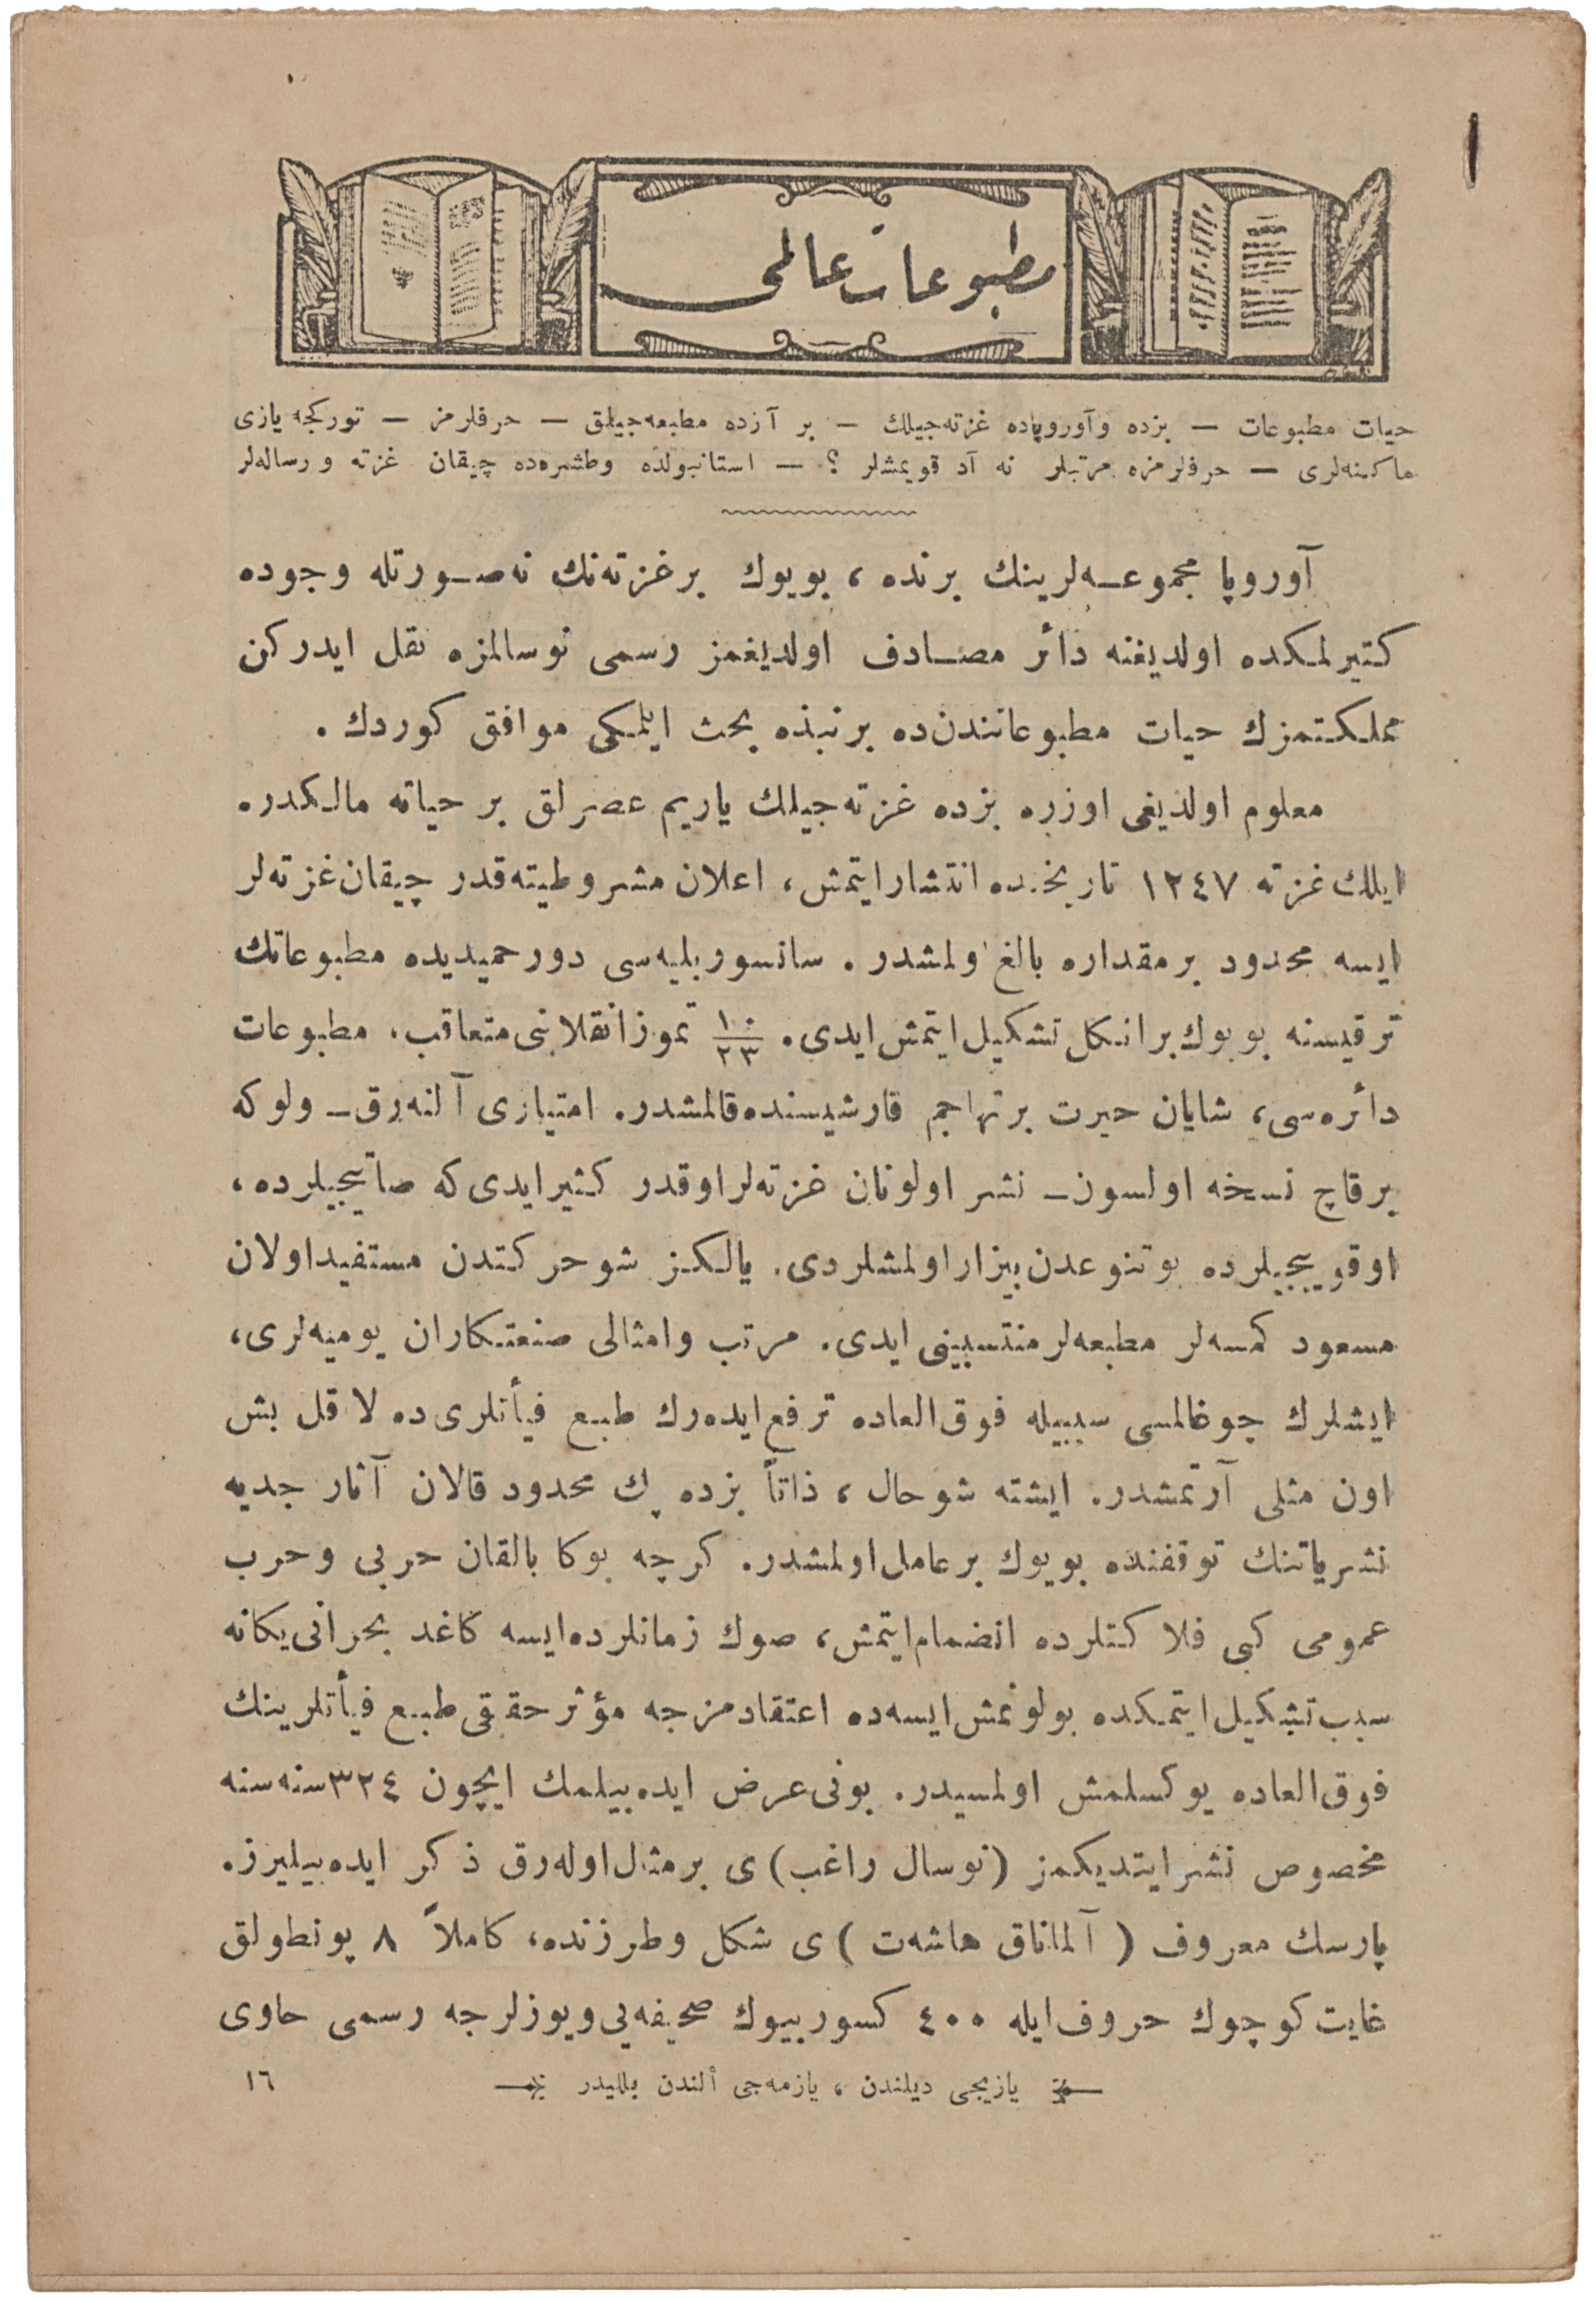 مطبوعات عالمی
حیات مطبوعات — بزده وآوروپاده غزته‌جیلك — بر آزده مطبعه‌جیلق — حرفلرمز — تورکجه یازی
ماکنه‌لری — حرفلرمزه مرتبلر نه آد قویمشلر ؟ — استانبولده وطشره‌ده چیقان غزته و رساله‌لر
آوروپا مجموعه‌لرینك برنده ، بویوك بر غزته‌نك نه‌صورتله وجوده
کتیرلمکده اولدیغنه دائر مصادف اولدیغمز رسمی نوسالمزه نقل ایدرکن
مملکتمزك حیات مطبوعاتندن‌ده برنبذه بحث ایلمکی موافق کوردك .
معلوم اولدیغی اوزره بزده غزته‌جیلك یاریم عصرلق بر حیاته مالکدر.
ایلك غزته ١٢٤٧ تاریخنده انتشار ایتمش، اعلان مشروطیته‌قدر چیقان غزته‌لر
ایسه محدود برمقداره بالغ اولمشدر . سانسور بلیه‌سی دور حمیدیده مطبوعاتك
ترقیسنه بویوك بر انکل تشکیل ایتمش ایدی. ١٠/٢٣ تموز انقلابنی متعاقب، مطبوعات
دائره‌سی، شایان حیرت بر تهاجم قارشیسنده قالمشدر. امتیازی آلنه‌رق ـ ولوکه
برقاچ نسخه اولسون ـ نشر اولونان غزته‌لر اوقدر کثیر ایدی که صاتیجیلرده،
اوقویجیلرده بو تنوعدن بیزار اولمشلردی. یالکز شو حرکتدن مستفید اولان
مسعود کمسه‌لر مطبعه‌لر منتسبینی ایدی. مرتب وامثالی صنعتکاران یومیه‌لری،
ایشلرك چوغالمسی سببیله فوق‌العاده ترفع ایده‌رك طبع فیأتلری ده لا قل بش
اون مثلی آرتمشدر. ایشته شو حال ، ذاتاً بزده پك محدود قالان آثار جدیه
نشریاتنك توقفنده بویوك بر عامل اولمشدر. کرچه بوکا بالقان حربی و حرب
عمومی کبی فلاکتلرده انضمام ایتمش، صوك زمانلرده ایسه کاغد بحرانی یکانه
سبب تشکیل ایتمکده بولونمش ایسه‌ده اعتقادمزجه مؤثر حقیقی طبع فیأتلرینك
فوق‌العاده یوکسلمش اولمسیدر. بونی عرض ایده‌بیلمك ایچون ٣٢٤ سنه سنه
مخصوص نشر ایتدیکمز (نوسال راغب) ی بر مثال اوله‌رق ذکر ایده‌بیلیرز.
پارسك معروف ( آلماناق هاشه‌ت ) ی شکل وطرزنده، کاملاً ٨ پونطولق
غایت کوچوك حروف ایله ٤٠٠ کسور بیوك صحیفه‌یی و یوزلرجه رسمی حاوی
یازیجی دیلندن ، یازمه‌جی ألندن بللیدر
١٦